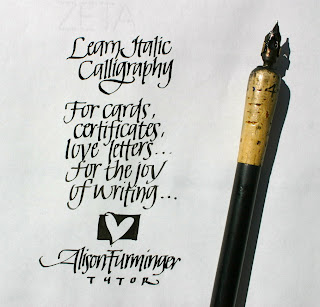 ZETA
Learn Italic
Calligraphy
For cards,
certificates,
love letters...
for the joy
of writing...
Alison Furminger
TUTOR